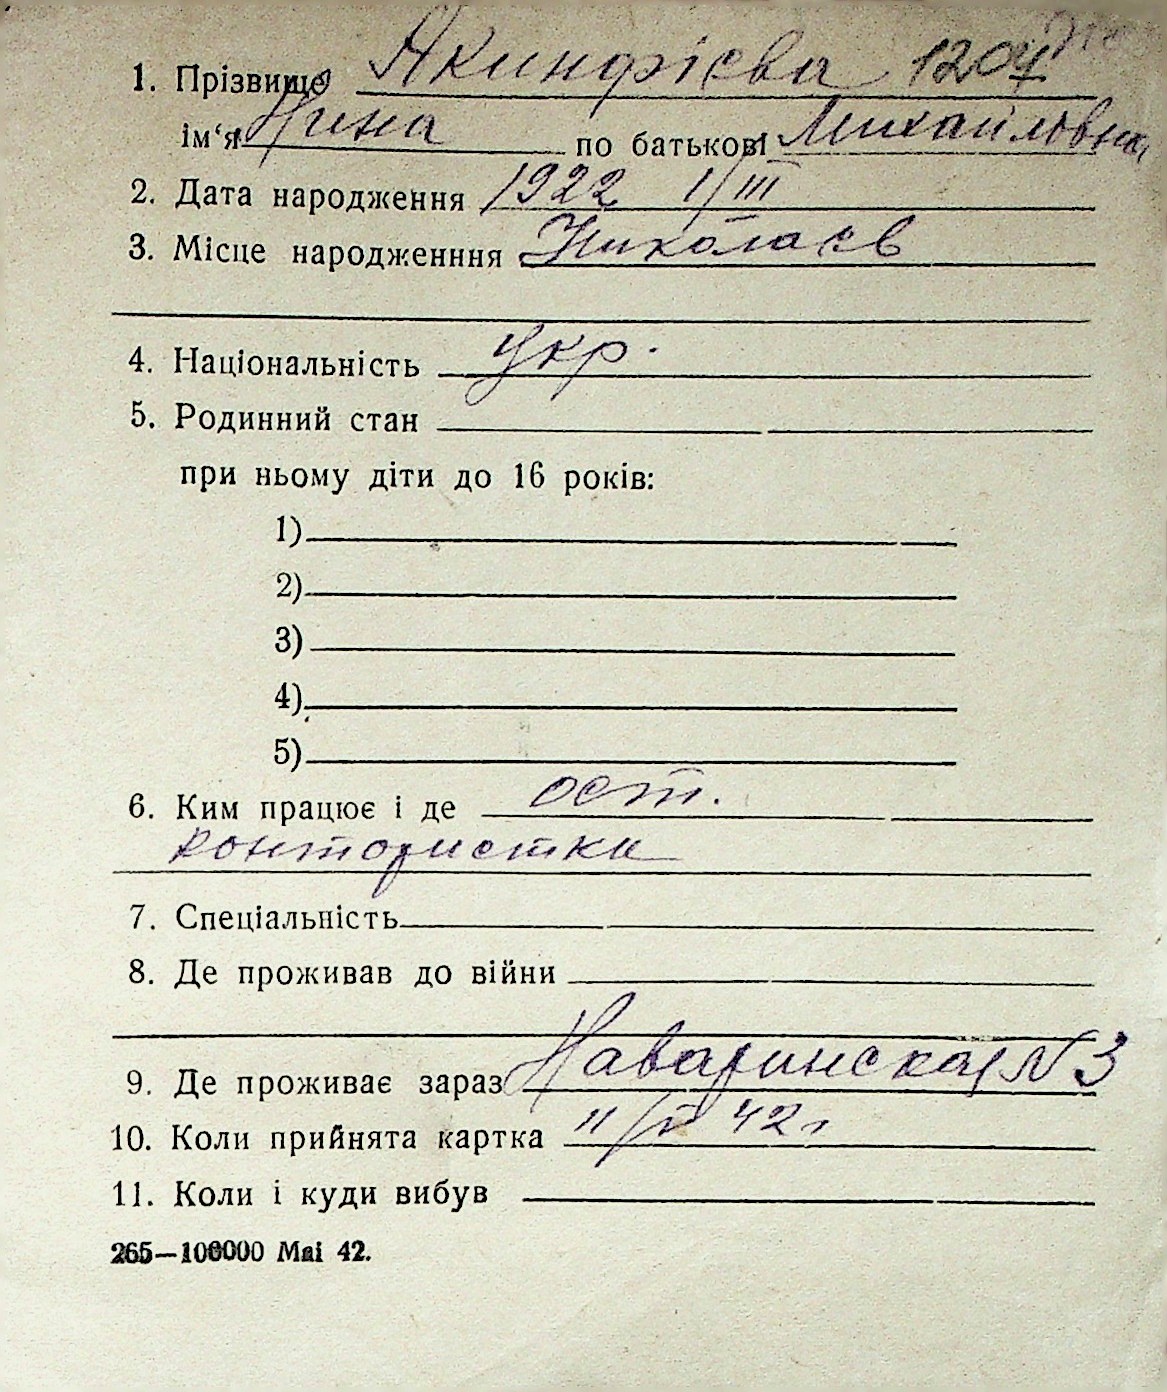 1. Прізвище Якинфієва 1204
ім‘я Нина по батькові Михайловна
2. Дата народження 1922 1/III
3. Місце народженння Николаєв
4. Національність укр.
5. Родинний стан
при ньому діти до 16 років:
1)
2)
3)
4)
5)
6. Ким працює і де ост.
контористки
7. Спеціальність
8. Де проживав до війни
9. Де проживає зараз Наваринская N 3
10. Коли прийнята картка 42 г
11. Коли і куди вибув
265—100000 Маі 42.